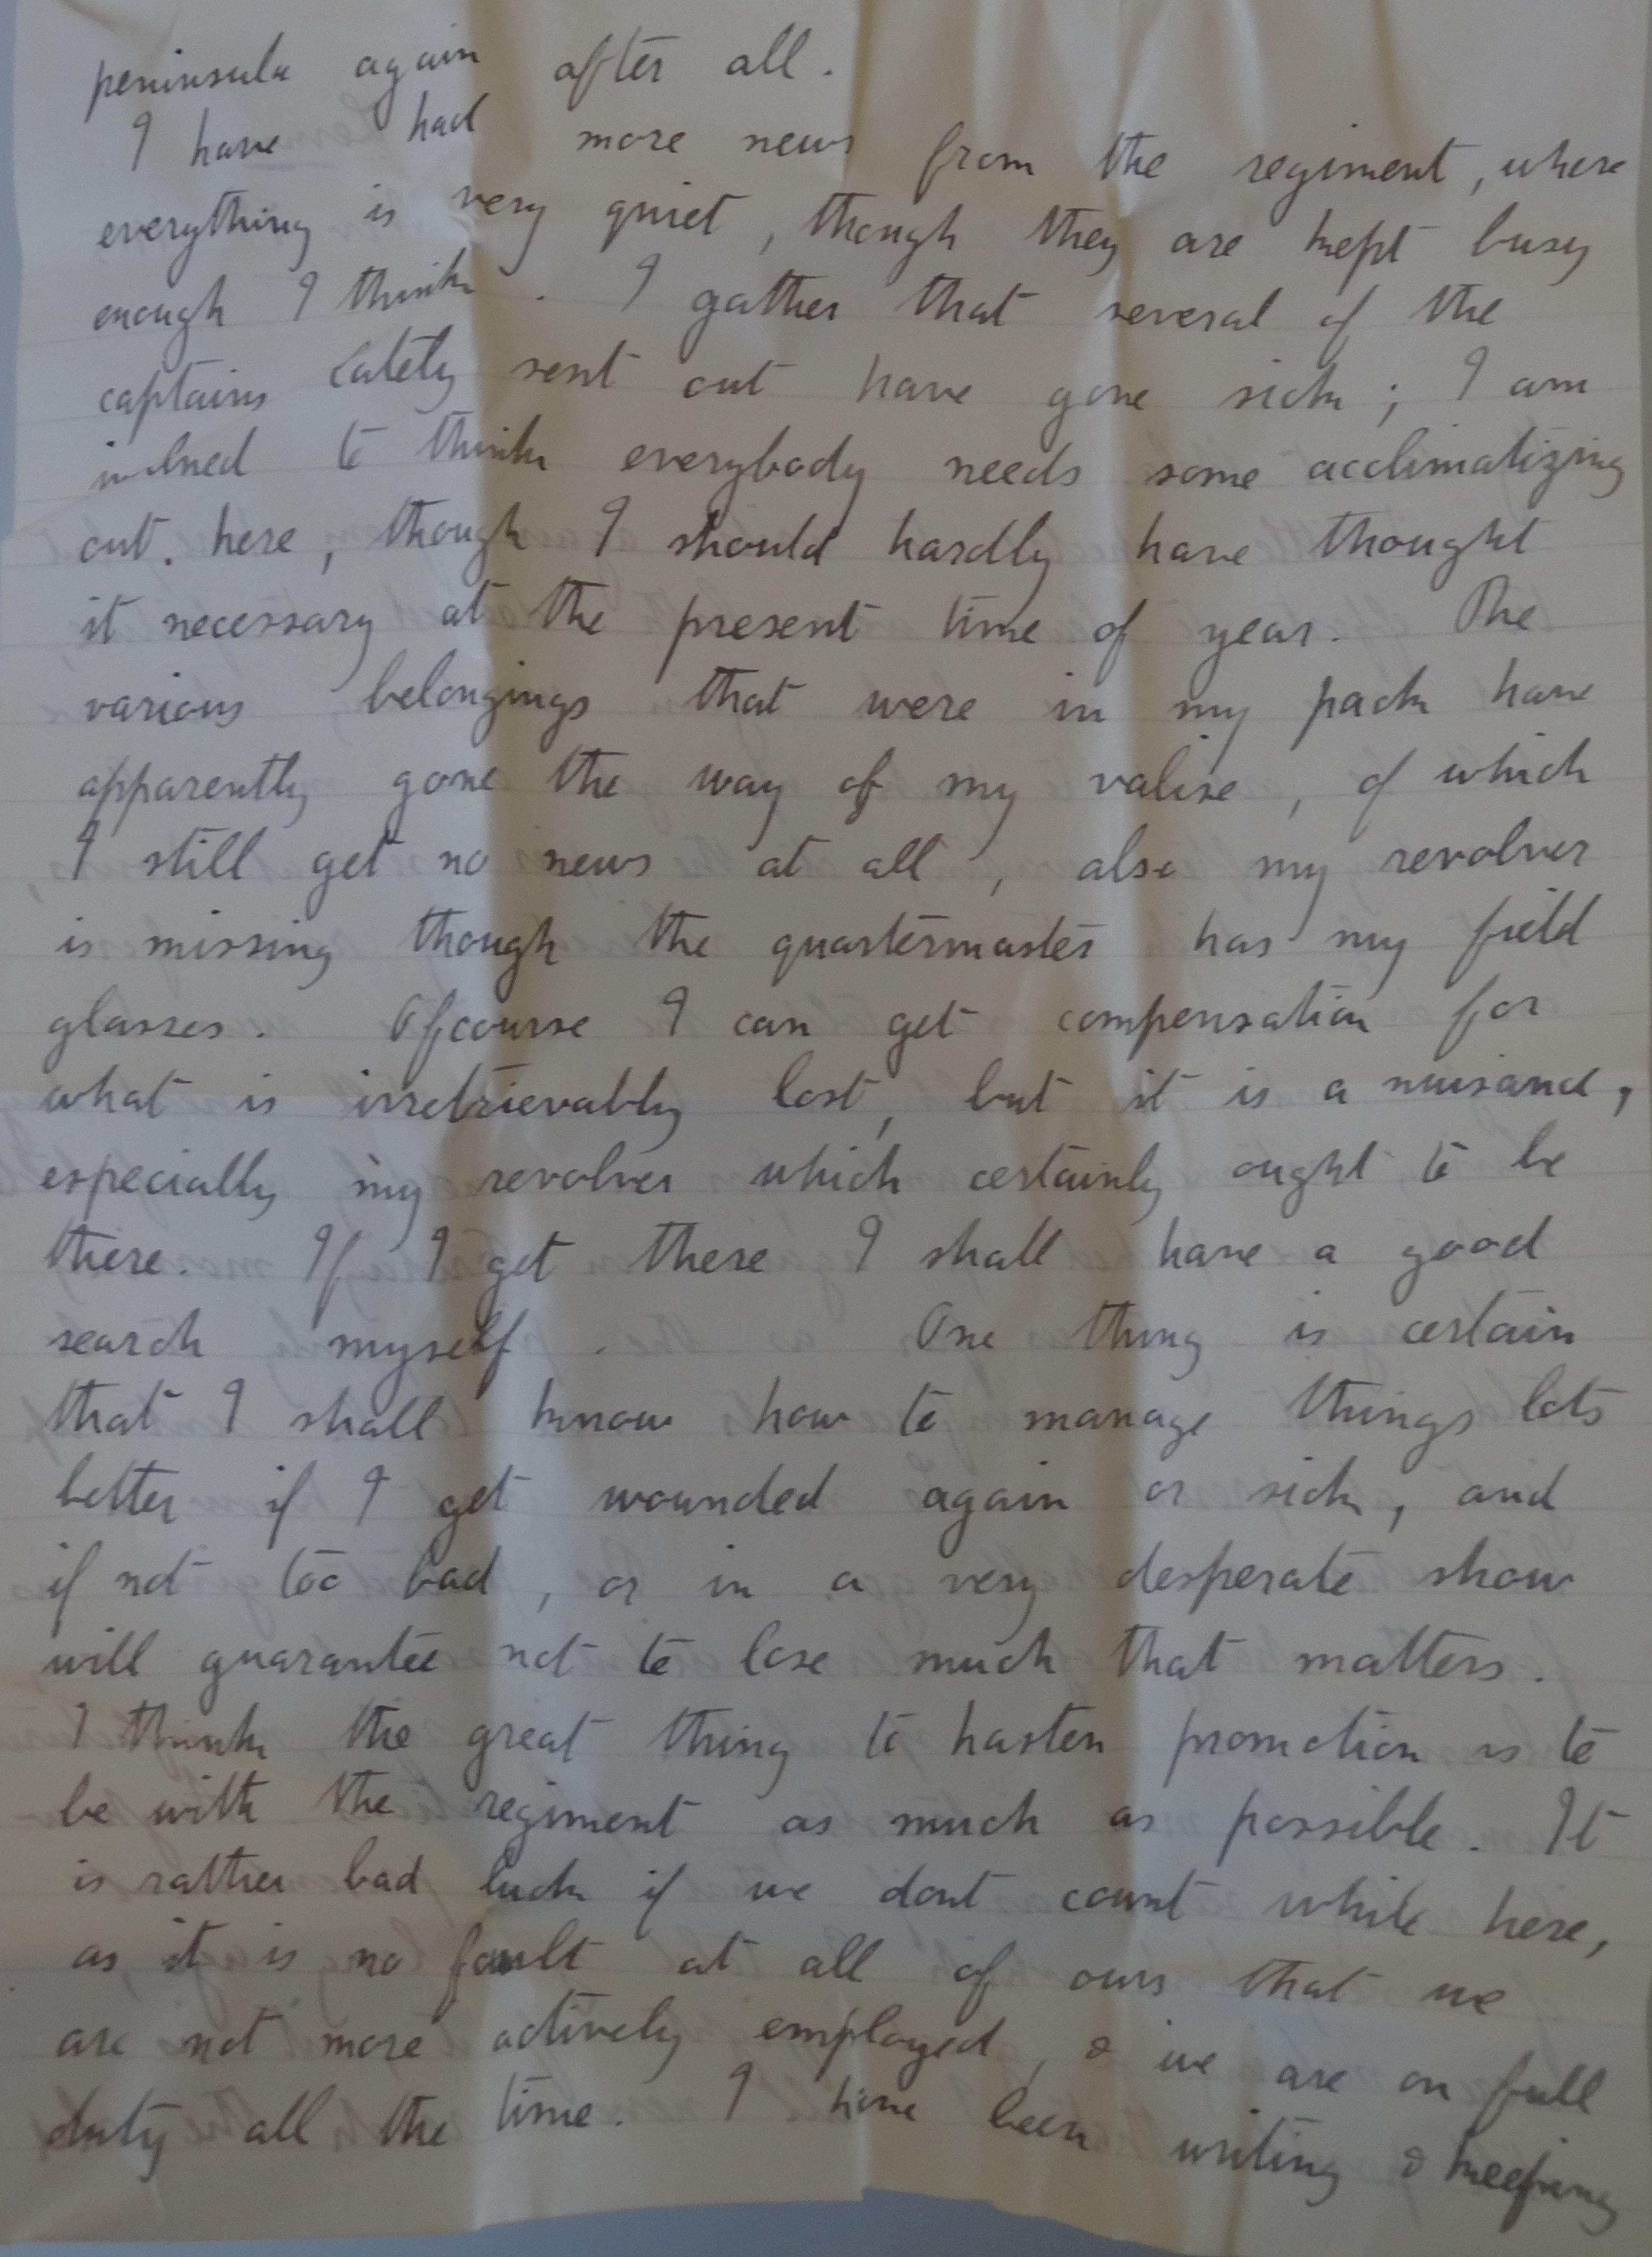 peninsula again after all.
I have had more news from the regiment, where
everything is very quiet, though they are kept busy
enough I think. I gather that several of the
captains lately sent out have gone sick; I am
inclined to think everybody needs some acclimatizing
out here, though I should hardly have thought
it necessary at the present time of year. The
various belongings that were in my pack have
apparently gone the way of my valise, of which
I still get no news at all, also my revolver
is missing though the quartermaster has my field
glasses. Ofcourse I can get compensation for
what is irretrievably lost, but it is a nuisance,
especially my revolver which certainly ought to be
there. If I get there I shall have a good
search myself. One thing is certain
that I shall know how to manage things lots
better if I get wounded again or sick, and
if not too bad, or in a very desperate show
will guarantee not to lose much that matters.
I think the great thing to hasten promotion is to
be with the regiment as much as possible. It
is rather bad luck if we dont count while here,
as it is no fault at all of ours that we
are not more actively employed, & we are on full
duty all the time. I have been writing & keeping